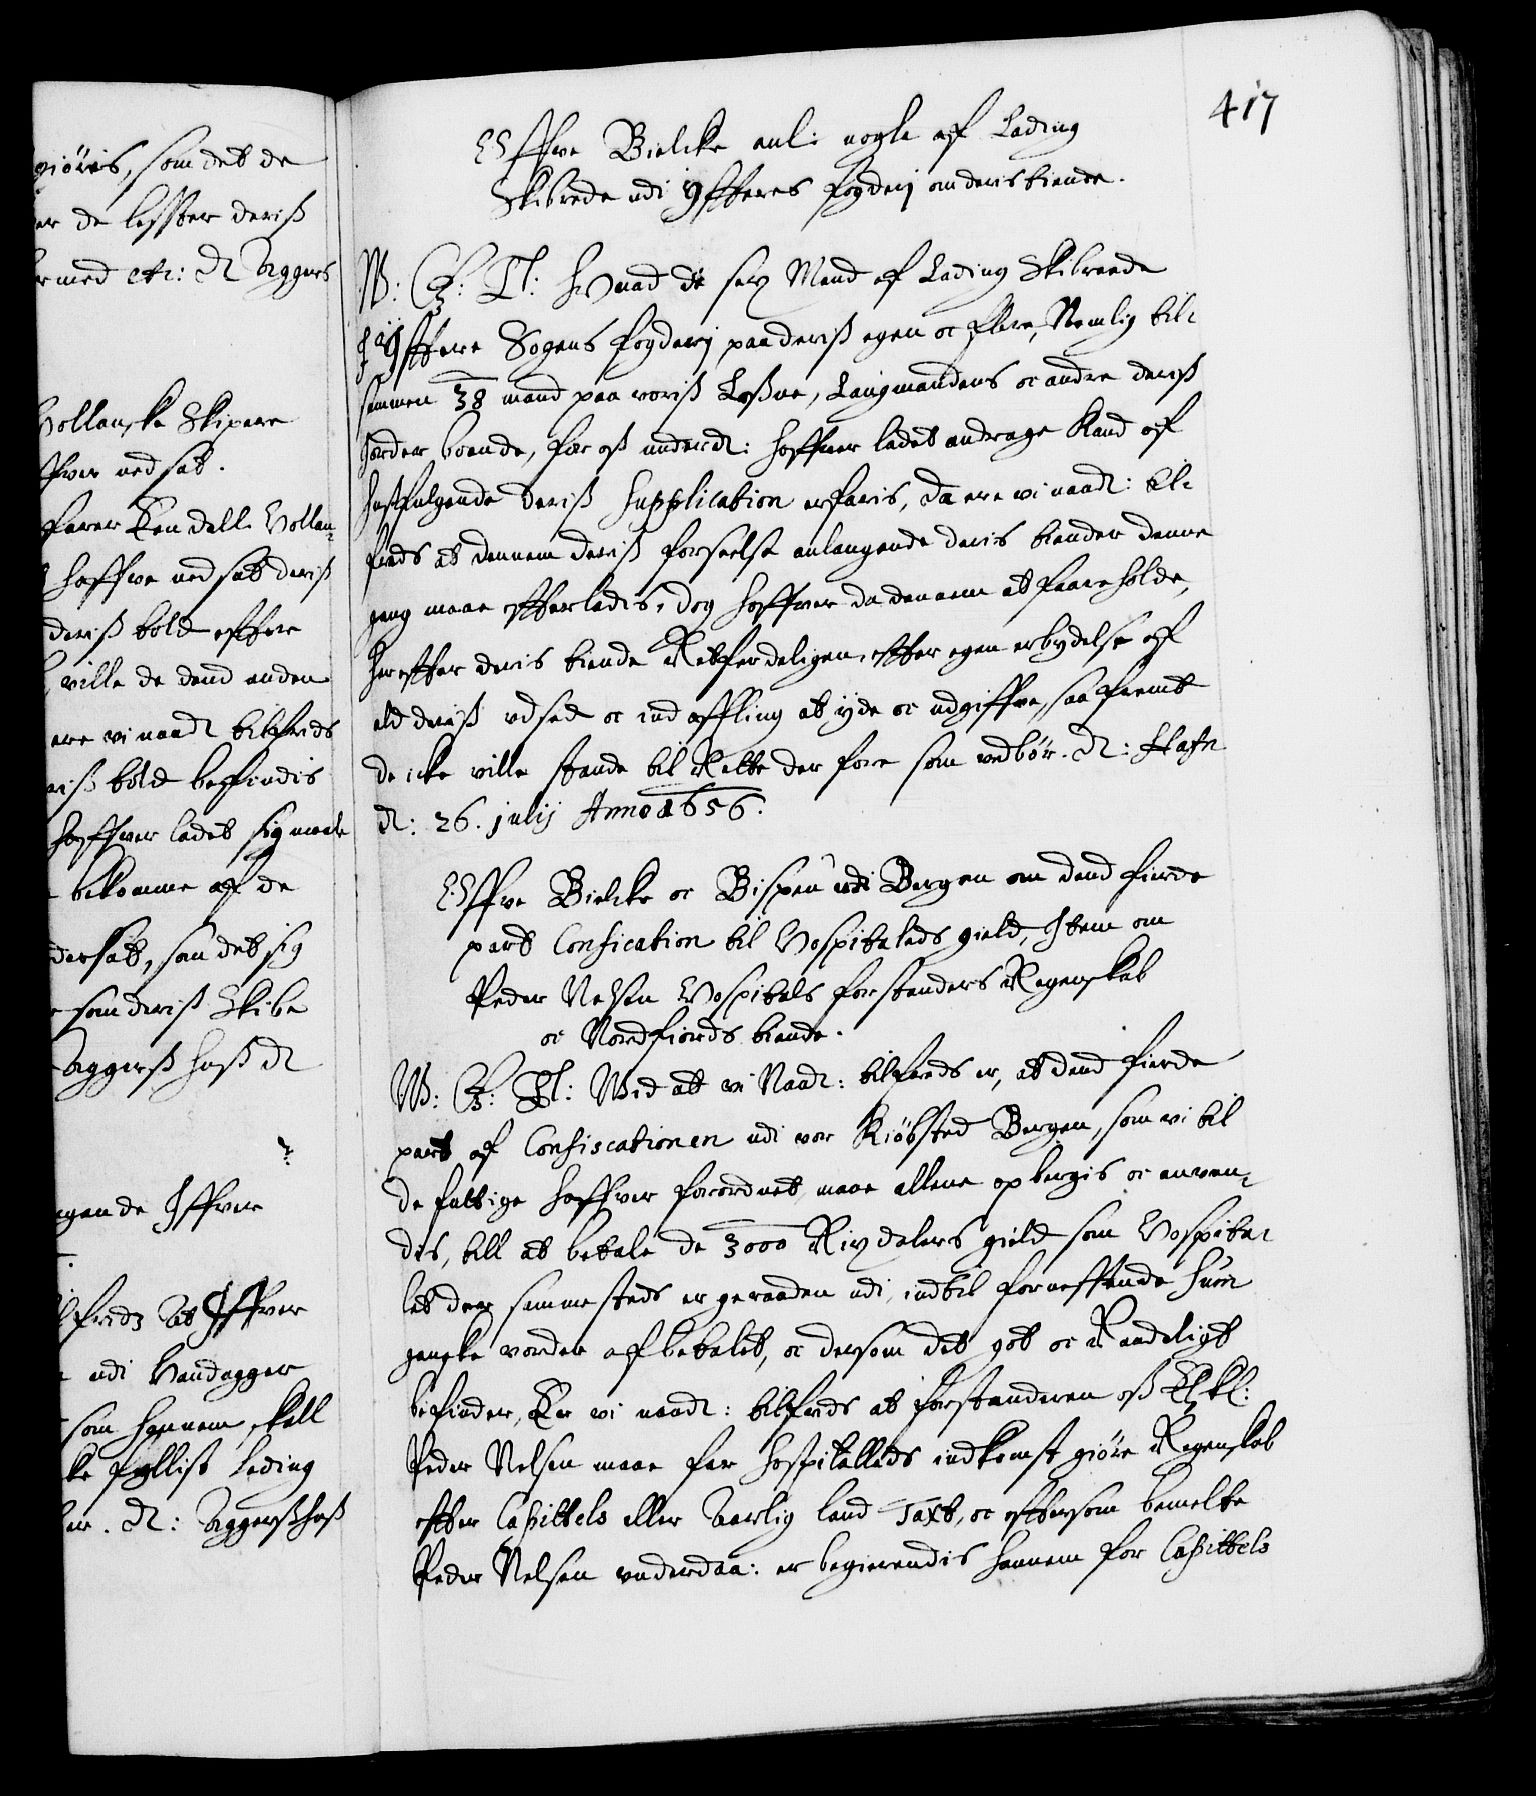 giöris, som det de
er de lesster deris
r med etc: Dt Aggers
Hollanske Skipere
ffver nedsat.
farer Kendelle Hollan-
haffve nedsatt deris
deris told effter
ville de dend anden
ere vi naadt tilfreds
ris told beffindis
haffver ladet sig mode
bekomme af de
dersat, som det sig
som deris Skibe
Aggershus Dt
gende Iffver
lfredz At Iffver
udi Vandagger
som hannem skall
ke fyllist Leding
er. Dt: Aggershus
417
Offve Bielcke anl: nogle af Lading
Skibrede udi Yttere Fogderj om deris tiende.
W: G: T: Hvad de sex Mend af Lading Skibreede
i Yttere Sogens fogderj paa deriss egen oc flere, Nemlig til-
sammen 38 mend paa voriss Lossne, Laugmandens oc andre deriss
Jorder boende, for oss underdt: haffver ladet andrage Kand af
hossfølgende deriss Supplication erfaris, da ere vi naadt: til-
freds at dennem deriss forseelse anlangende deris tiender denne
gang maae effterladis, dog haffver du dennem at foreholde,
hereffter deris tiende Retferdeligen, effter egen erbydelse af
ald deriss udsed oc indaffling at yde oc udgiffve, saa fremt
de icke ville stande til Rette der fore som vedbør. Dt: Hafn
d: 26. julij Anno 1656.
Offve Bielcke oc Bispen udi Bergen om dend fierde
part Confication til Hospitalets gield, Item om
Peder Nelsen Hospitals forstanders Regenskab
oc Nordfiords tiende.
W: G: T: Wid att vi Naadt: tilfreds er, at dend fierde
part af Confiscationen udi vor Kiöbsted Bergen, som vi til
de fattige haffver forordnet, maae allene opbergis oc anven-
dis, till at betale de 3000 Rixdalers gield som Hospita-
let der sammesteds er geraaden udi, indtil forneffnde Sum
gangke vorder afbetalt, oc dersom det got oc Raadeligt
befinder, Er vi naadt: tilfreds at forstanderen oss Elskl:
Peder Nelsen maae for Hospitallets indkomst giöre Regenskab
effter Capittels eller Aarlig land Taxt, oc effersom bemelte
Peder Nelsen underdaa: er begierendis hannem for Capittels